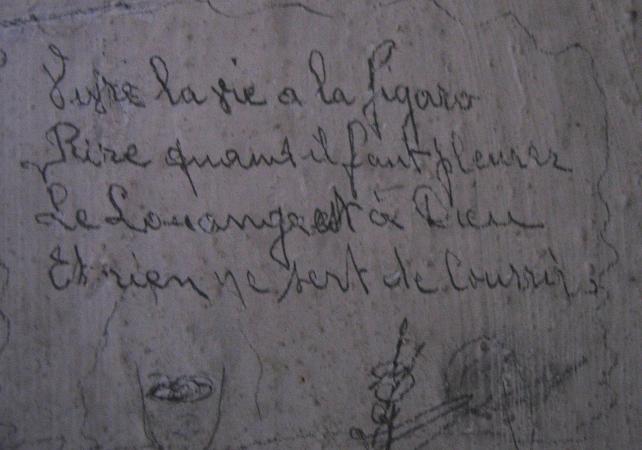 Vivre la vie a la figaro
Rire quant il faut pleurer
Le Louange est à Dieu
Et rien ne sert de Courrir